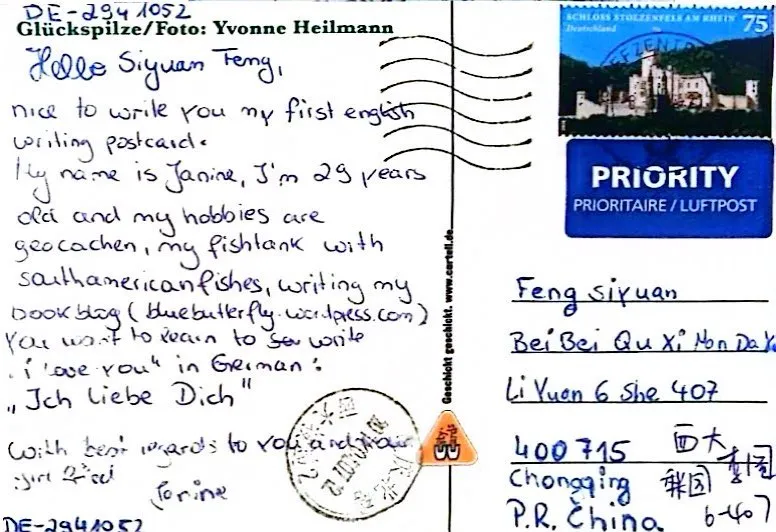 DE-2941052
Glückspilze/Foto: Yvonne Heilmann
Hello Siyuan Feng,
nice to write you my first english
writing postcard.
My name is Janine, I'm 29 years
old and my hobbies are
geocachen, my fishtank with
southamericanfishes, writing my
book blog (bluebutterfly.wordpress.com)
You want to learn to write
"i love you" in German:
„Ich liebe Dich"
With best regards to you and your
Janine
DE-2941052
Geschickt geschickt. www.cartell.de
SCHLOSS STOLZENFELS AM RHEIN
Deutschland
75
PRIORITY
PRIORITAIRE / LUFTPOST
Feng siyuan
BeiBei Qu Xi Nan Da
Li Yuan 6 She 407
400715
西大
Chongqing
P.R. China
6-407